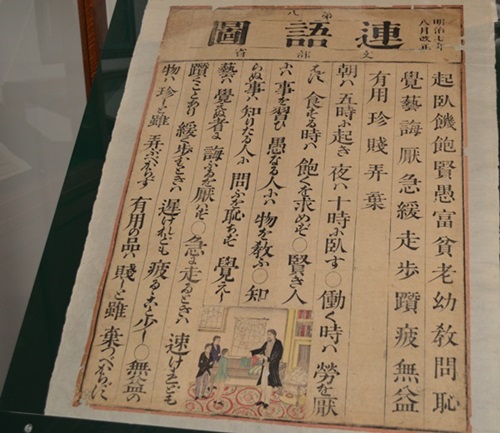 明治七年
八月改正
第八
連語圖
文部省
起臥饑飽賢愚富貧老幼教問恥
覺藝誨厭急緩走歩躓疲無益
有用珍賤弄棄
朝ハ五時に起き夜ハ十時に臥す○働く時ハ勞を厭
はず食する時ハ飽くを求めず○賢き人
にハ事を習ひ愚なる人にハ物を教ふ○知
らぬ事ハ知りたる人に問ふを恥ぢず覺えし
藝ハ覺えぬ者に誨ふるを厭はず○急に走るときハ速けれども
躓くことあり緩く歩むときハ遲けれども疲るゝこと少し○無益の
物ハ珍しと雖弄ぶべからず有用の品ハ賤しと雖棄つべからず